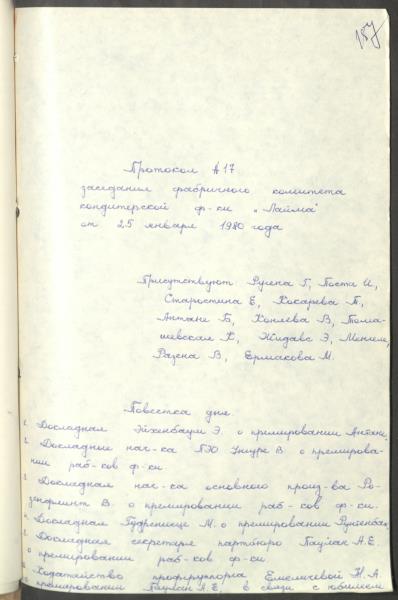 187
Протокол № 17
заседания фабричного комитета
кондитерской ф-ки „Лайма"
от 25 января 1980 года
Присутствуют Ругена Г, Поста И,
Старостина Е, Кокарева П,
Антане Б, Конлева В, Тома-
шевская К, Жидавс Э,
Разена В, Ермакова М.
Повестка дня.
1. Докладная Эйхенбаум Э. о премировании Антане.
2. Докладные нач-ка ПЭО Унгуре В. о премирова-
нии раб-ков ф-ки.
3. Докладная нач-ка основного произ-ва Ро-
зенфлинт В. о премировании раб-ков ф-ки.
4. Докладная М. о премировании
5. Докладная секретаря партбюро Паулан А.Е.
о премировании раб-ков ф-ки.
6. Ходатайство профгруппорга Емеличевой Н.А.
о премировании Паулан А.Е. в связи с юбилеем